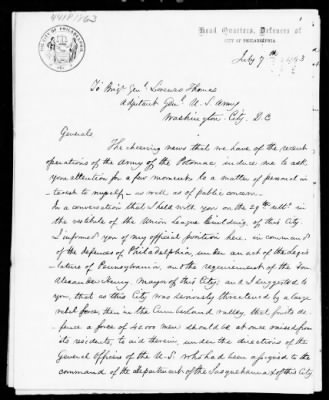 4418 1863
THE CITY OF PHILADELPHIA
Head Quarters, Defences of
CITY OF PHILADELPHIA
July 7th 1863
To Brigr Genl Lorenzo Thomas
Adjutant Genl U. S. Army
Washington City. D. C
General
The cheering news that we have of the recent
operations of the Army of the Potomac induce me to ask
your attention for a few moments to a matter of personal in-
terest to myself, as well as of public concern.
In a conversation that I held with you on the 29th ulto. in
the vestibule of the Union League Building, of this City
I informed you of my official position here, in command
of the defences of Philadelphia, under an act of the Legis
lature of Pennsylvania, and the requirement of the Hon
Alexander Henry Mayor of this City, and I suggested to
you, that as this City was seriously threatened by a large
rebel force, then in the Cumberland valley, that for its de-
fence a force of 4000 men should be at once raised from
its residents, to aid therein, under the directions of the
General Officers of the U.S. who had been assigned to the
command of the department of the Susquehanna & of this City